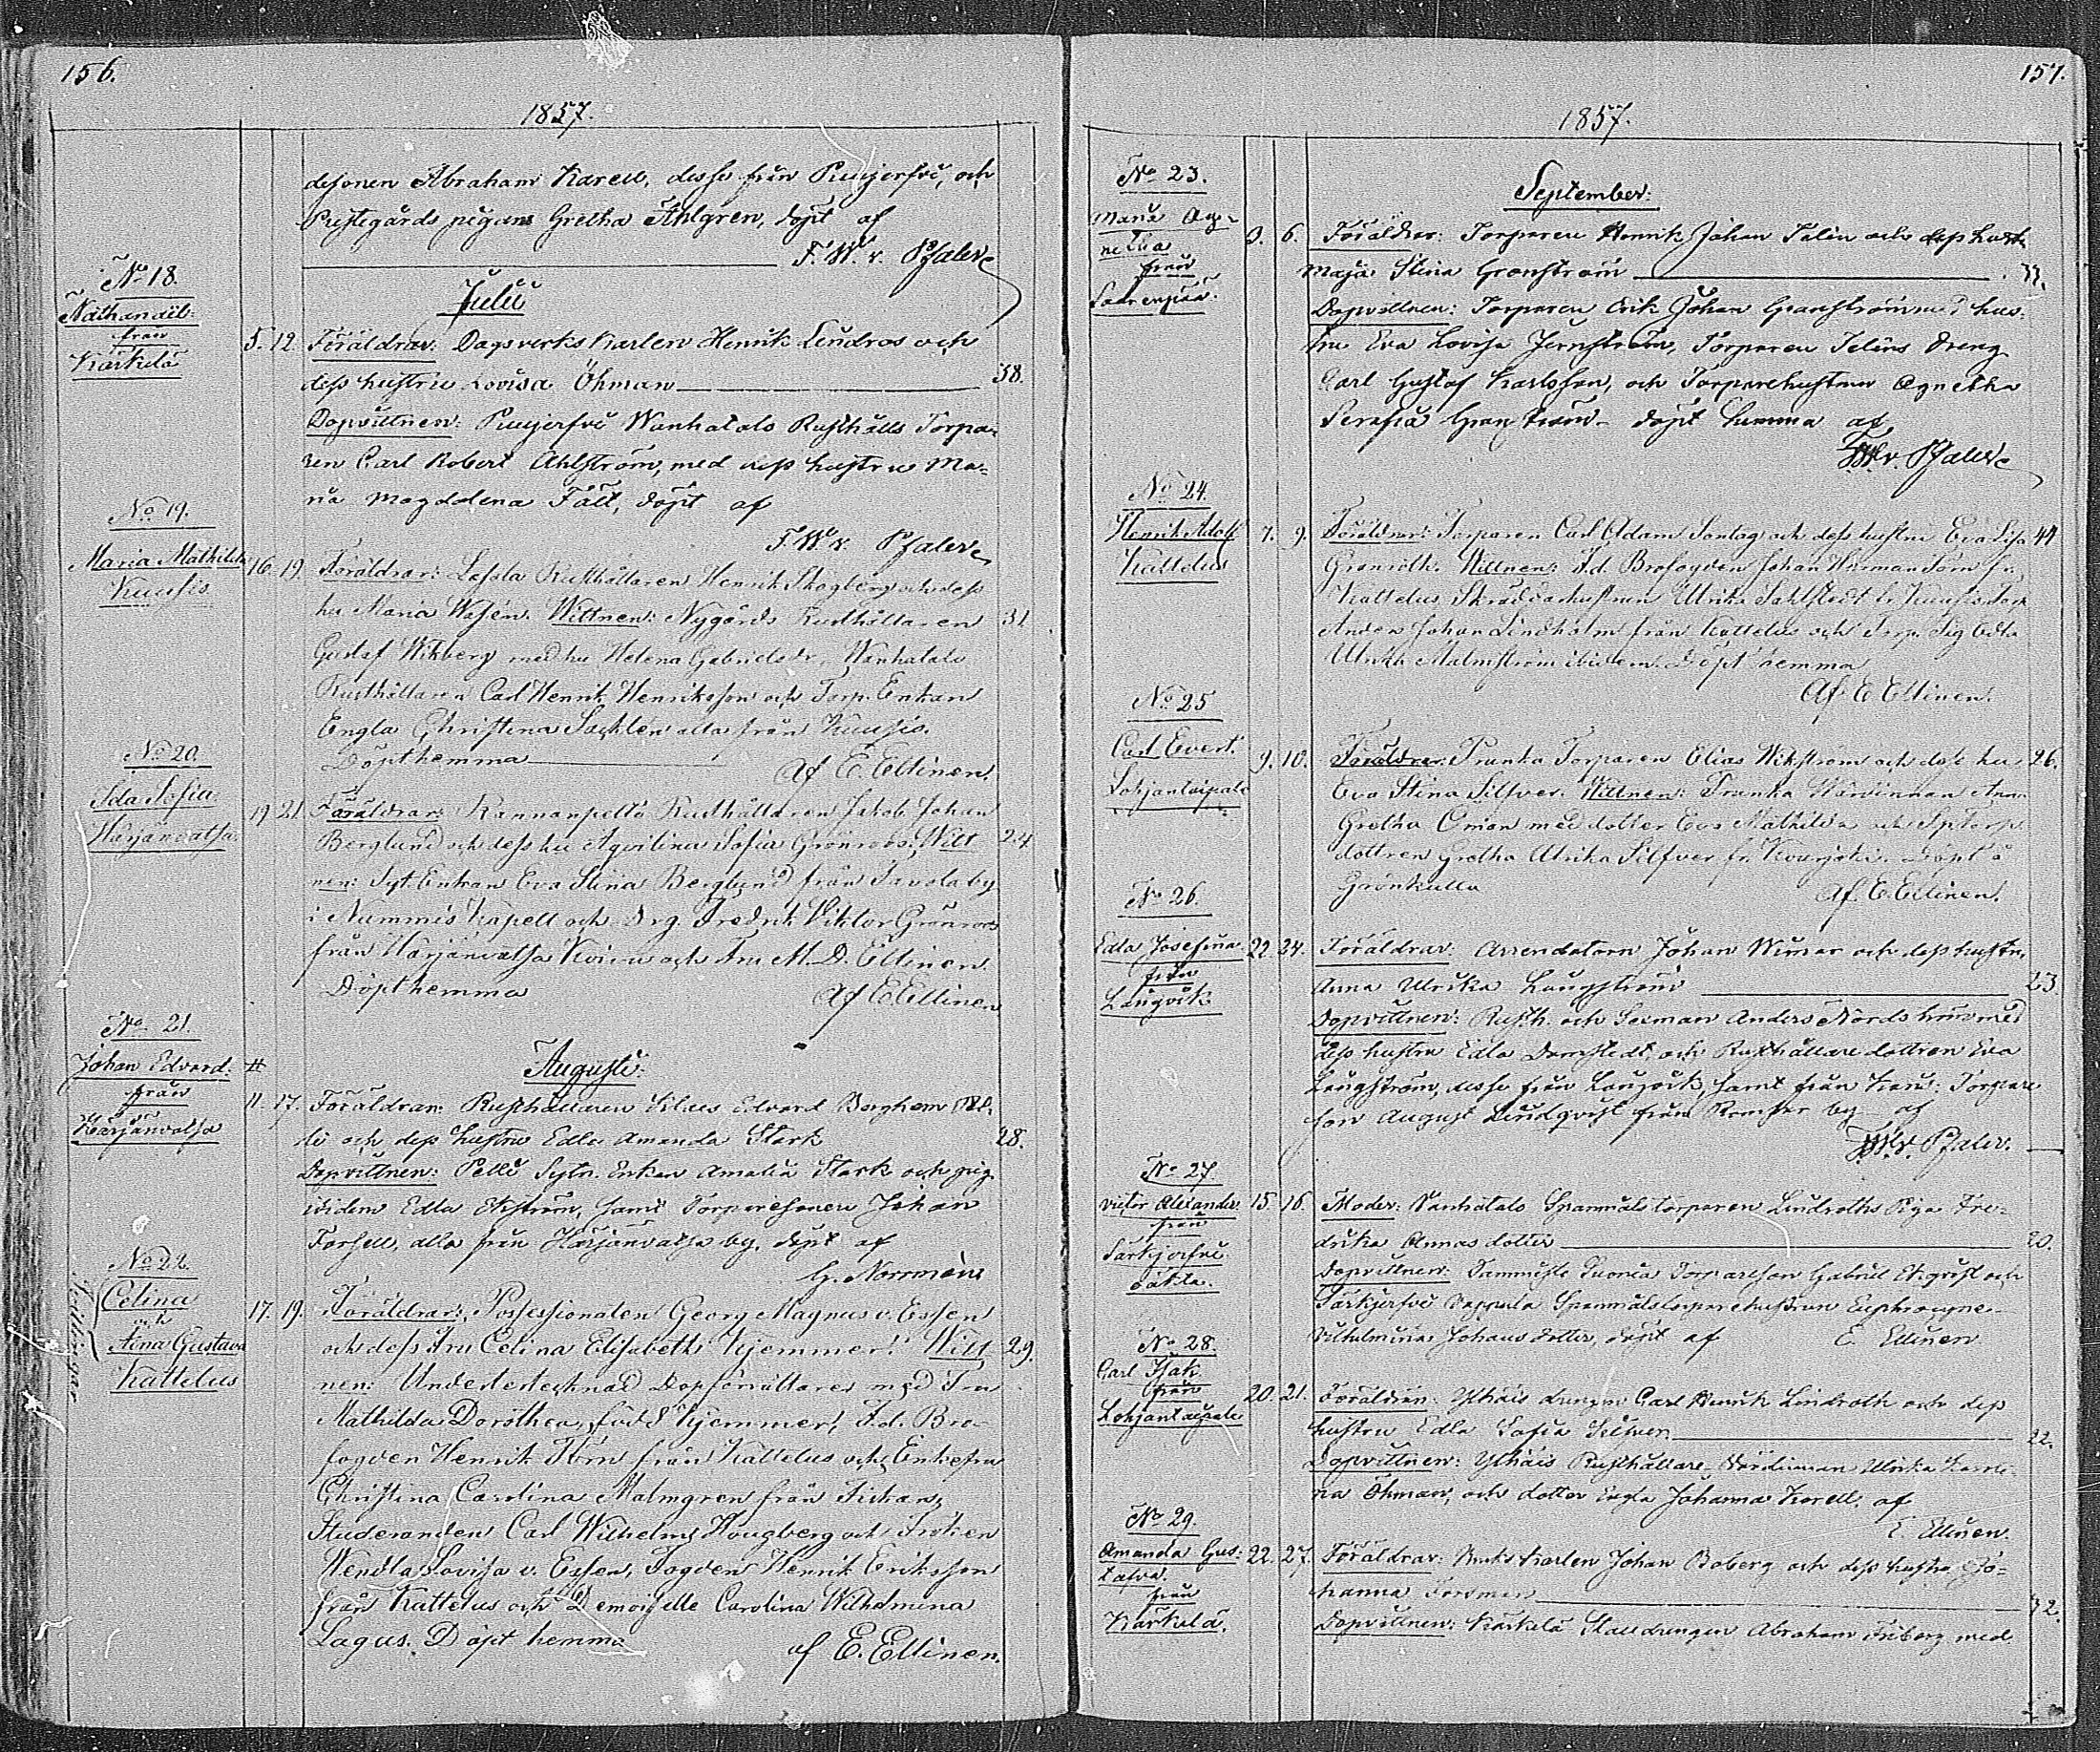 156.
1857.
desonen Abraham Karell, desse från Puujerfvi, och
Prestegårds pigan Gretha Ahlgren, döpt af
F. W. v. Pfaler
Julii
No 18.
Nathanaël
från
Kärkelä
5. 12. Föräldrar: Dagsverks Karlen Henrik Lindros och
dess hustru Lovisa Öhman 38.
Dopvittnen: Puujerfvi Wanhatalo Rusthålls Torpa-
ren Carl Robert Ahlström, med dess hustru Ma-
ria Magdalena Fält, döpt af
F. W. v. Pfaler
No 19.
Maria Mathilda
Kuusis
16. 19. Föräldrar: Lassla Rusthållaren Henrik Skogberg och dess
hu Maria Wasén. Wittnen: Nygårds Rusthållaren 31.
Gustaf Wikberg med hu Helena Gabrielsdr, Wanhatalo
Rusthållaren Carl Henrik Henriksson och Torp. Enkan
Engla Christina Sacklen alla från Kuusis.
Döpt hemma Af E. Ellinen.
No 20.
Ida Sofia
Harjanvatsa.
19 21. Föräldrar: Rannanpelto Rusthållaren Jakob Johan
Berglund och dess hu Aqvilina Sofia Grönroos. Witt 24.
nen: Syt. Enkan Eva Stina Berglund från Tavola by
i Nummis Kapell och drg. Fredrik Viktor Grönroos
från Harjanvatsa Koivu och Fru M. D. Ellinen.
Döpt hemma Af E Ellinen
Augusti.
No 21.
Johan Edvard.
från
Harjanvatsa
11. 17. Föräldrar: Rusthållaren Klaes Edvard Berghem
och dess hustru Edla Amanda Stark 28.
Dopvittnen: Pelli Sytn. Enkan Amalia Stark och pig.
ibidem Edla Ekström, samt Torparesonen Johan
Forsell, alla från Harjanvatsa by, döpt af
G. Norrmén
No 22.
Tvillingar
Celina
och
Aina Gustava
Kattelus
17. 19. Föräldrar: Possessionaten Georg Magnus v. Essen
och dess Fru Celina Elisabeth Kjemmer. Witt 29.
nen: Undertecknad Dopförrättare med Fru
Mathilda Dorothea, född Kjemmer, F.d. Bro-
fogden Henrik Törn från Kattelus och Enkefru
Christina Carolina Malmgren från Fiskars,
Studeranden Carl Wilhelm Hougberg och Fröken
Wendla Lovisa v. Essen, Fogden Henrik Eriksson
från Kattelus och Demoiselle Carolina Wilhelmina
Lagus. Döpt hemma af E. Ellinen.
157.
1857.
September.
No 23.
Maria Ag-
netha
från
Saarenpää.
3. 6. Föräldrar: Torparen Henrik Johan Telin och dess hustru
Maja Stina Granström 33.
Dopvittnen: Torparen Erik Johan Granström med hus-
tru Eva Lovisa Jernström, Torparen Telins dreng
Carl Gustaf Karlsson, och Torparehustrun Agnetha
Serafia Granström. döpt hemma af
F.W.v. Pfaler
No 24.
Henrik Adolf
Kattelus
7. 9. Föräldrar: Torparen Carl Adam Sontag och dess hustru Eva Lisa 44
Grönroth. Wittnen: F.d. Brofogden Johan Herman Törn fr.
Kattelus Skräddarhustrun Ulrika Sahlstedt fr. Kuusis Torp.
Anders Johan Lindholm från Kattelus och Torp. Pig. Edla
Ulrika Malmström ibidem. Döpt hemma
Af E Ellinen.
No 25
Carl Evert.
Lohjantaipale
9. 10. Föräldrar: Prunka Torparen Elias Wikström och dess hu 26.
Eva Stina Silfver. Wittnen: Prunka Värdinnan Anna
Gretha Öman med dotter Eva Mathilda och Sp.torp.
dottren Gretha Ulrika Silfver fr. Kourjoki. Döpt å
Grönkulla Af E. Ellinen.
No 26.
Edla Josefina
från
Långvik.
22. 24. Föräldrar: Arrendatorn Johan Wimer och dess hustru
Anna Ulrika Långström 23.
Dopvittnen: Rusth. och Sexman Anders Nordström med
dess hustru Edla Damstedt, och Rusthållare dottren Eva
Långström, desse från Långvik, samt från Karis: Torpare
son August Lindqvist från Romsar by af
F.W.v. Pfaler.
No 27.
Victor Alexander
från
Särkjerfvi
Sakta.
15. 16. Moder: Vanhatalo Spannmåls torparen Lindroths Piga Fre-
drika Annas dotter 20.
Dopvittnen: Tammisto Suonia Torparesson Gabriel Ekqvist och
Särkjerfvi Seppälä Spannmålstorparehustrun Euphrosyne
Vilhelmina Johans dotter, döpt af E. Ellinen
No 28.
Carl Isak
från
Lohjantaipale
20. 21. Föräldrar: Ylhäis drengen Carl Henrik Lindroth och dess
hustru Edla Sofia Silfver 22.
Dopvittnen: Ylhäis Rusthållare Värdinnan Ulrika Karoli-
na Öhman, och dotter Engla Johanna Korell, af
E. Ellinen.
No 29.
Amanda Gus-
tafva
från
Kärkelä.
22. 27. Föräldrar: Bruks karlen Johan Boberg och dess hustru Jo-
hanna Forsman 32.
Dopvittnen: Kärkelä Stalldrengen Abraham Friberg med